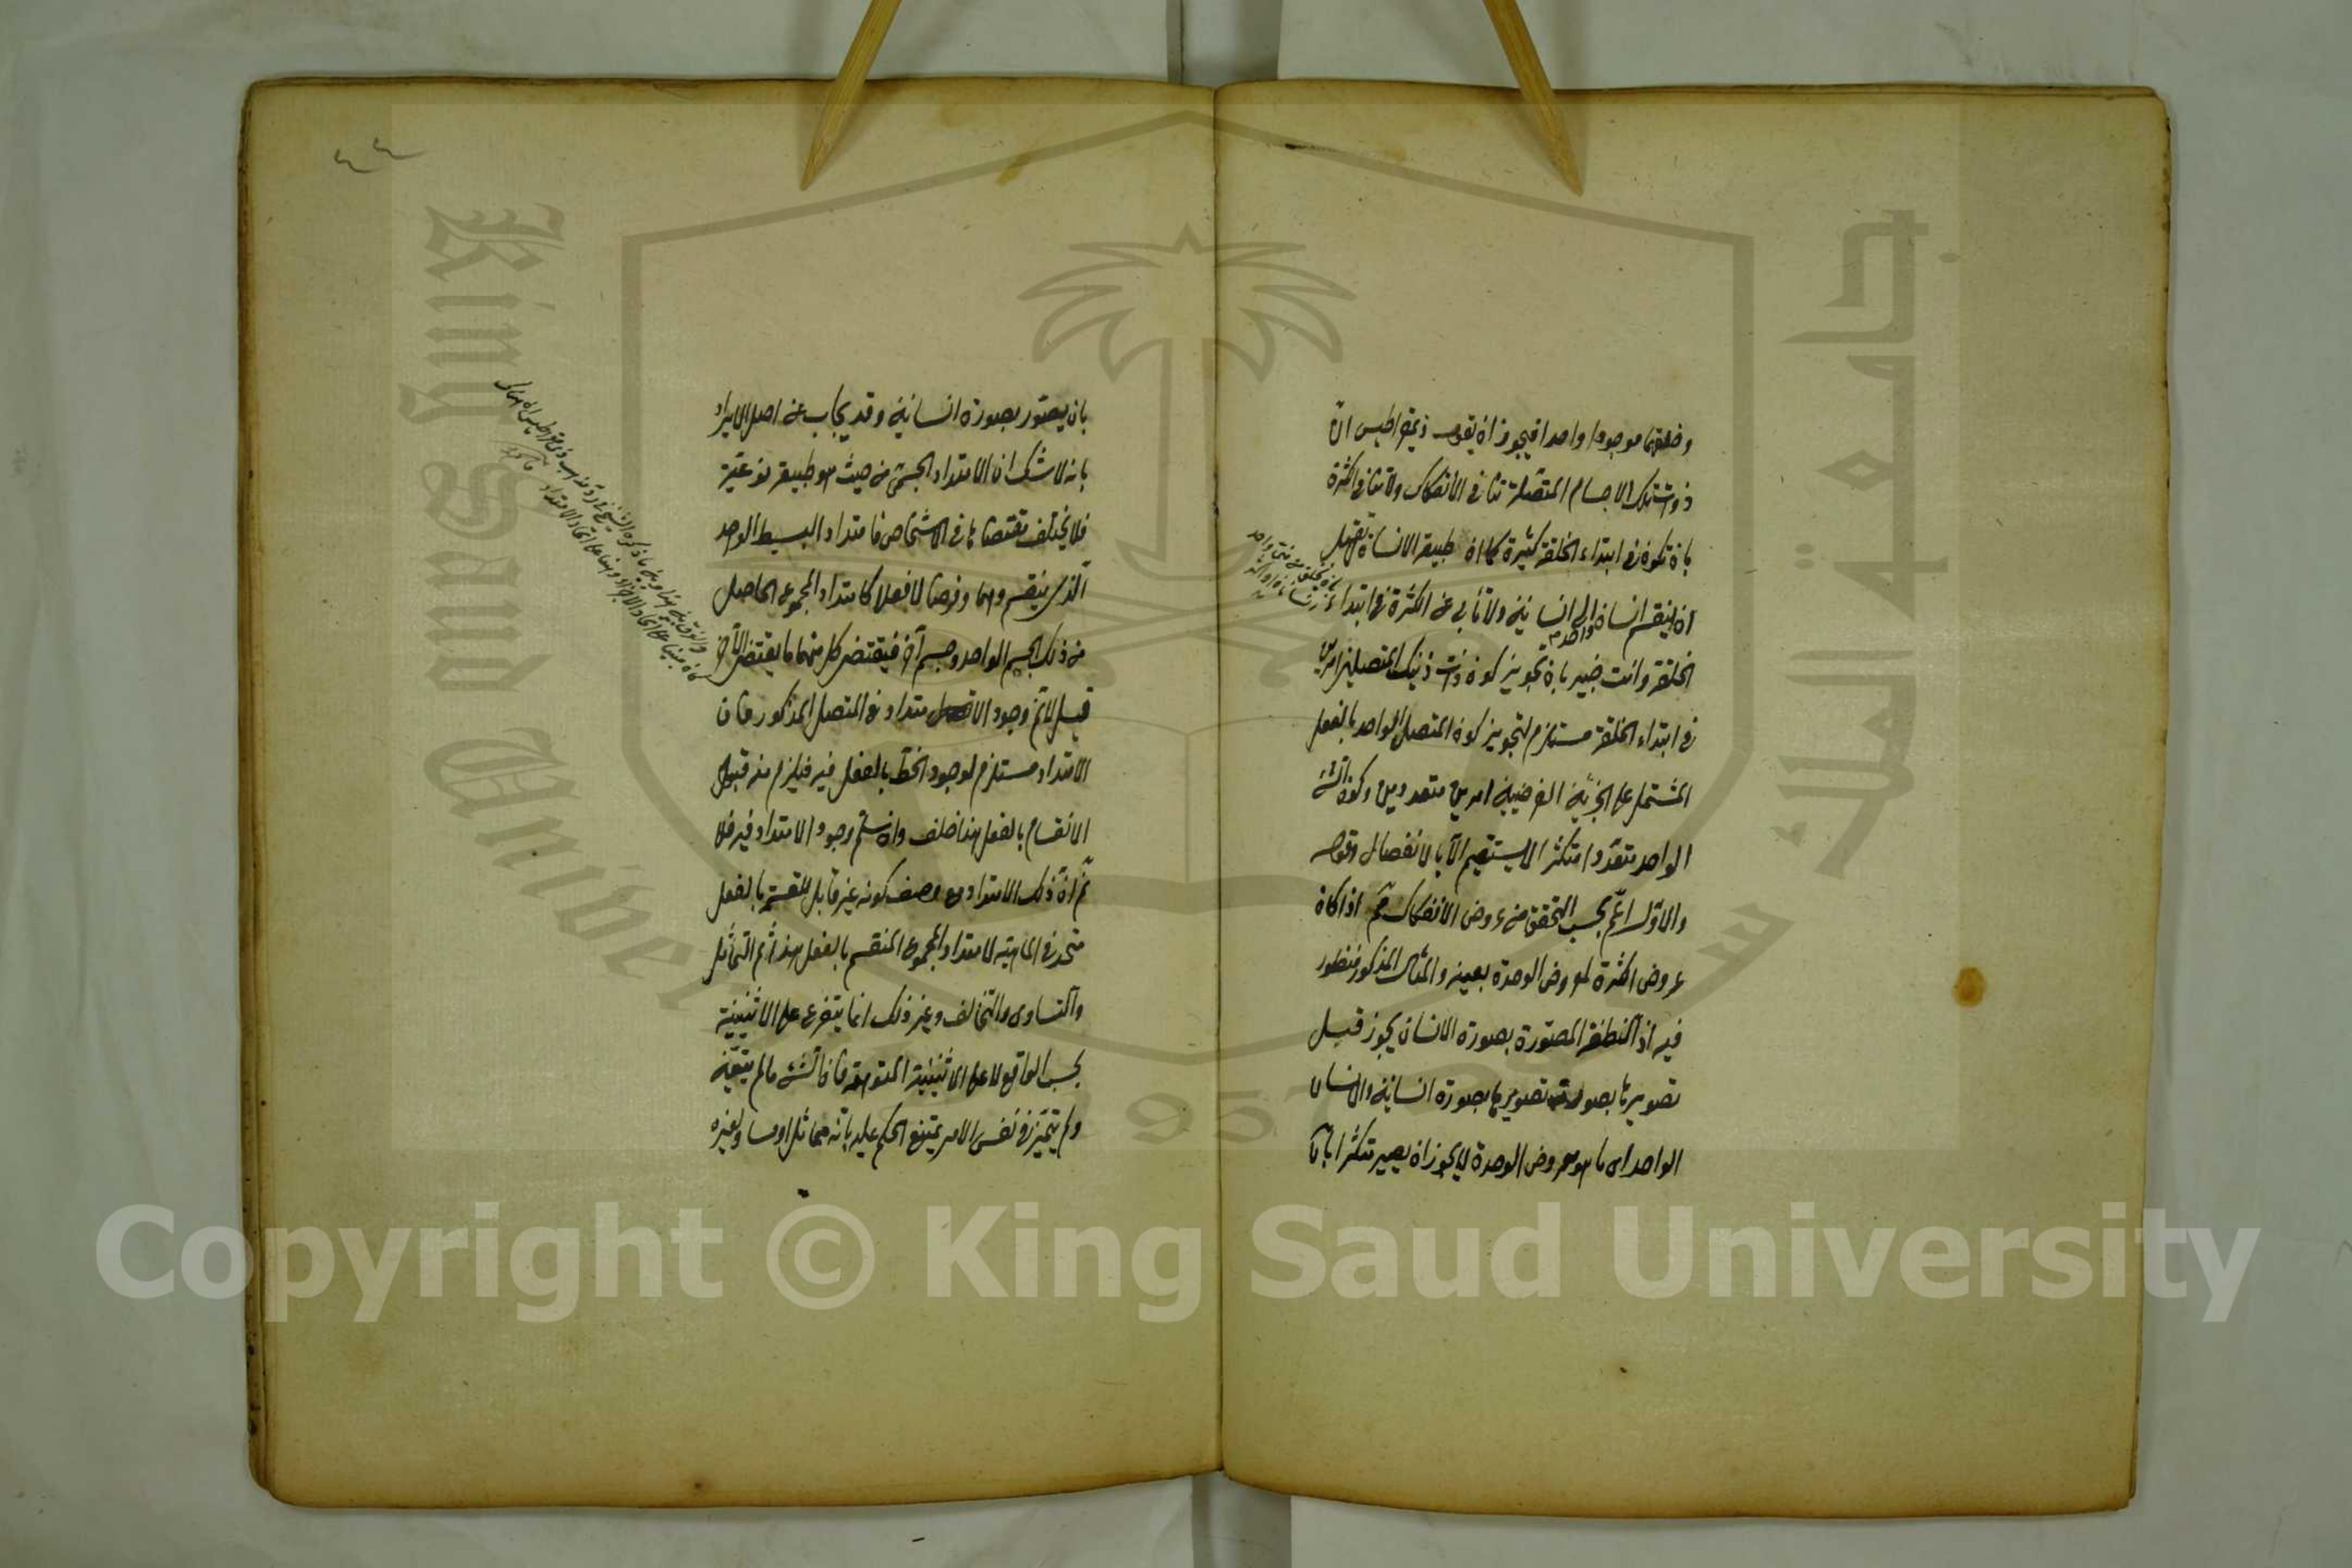 وخلقتها موجودا واحدا فيجوز ان يقول ذيمقراطيس ان
ذوات تلك الاجسام المتصلة تنافي الانفكاك ولا تنافي الكثرة
بان تكون في ابتداء الخلقة كثيرة كما ان طبيعة الانسان
ان ينقسم انسان واحد الى انسانين ولا تأبى عن الكثرة في ابتداء
الخلقة وانت خبير بان تجويز كون ذينك المتصلين امرين
في ابتداء الخلقة مستلزم لتجويز كون المتصل الواحد بالفعل
المشتمل على الجزئين الفرضيين امرين متعددين وكون الشئ
الواحد متعددا متكثرا لا يستقيم الا بالانفصال
والاول اعم بحسب التحقق من عروض الانفكاك اذا كان
عروض الكثرة لمعروض الوحدة بعينه والمثال المذكور منظور
فيه اذ النطفة المصورة بصورة الانسان يجوز قبل
تصويرها بصورة تصويرها بصورة انسانية والانسان
الواحد اى ما هو معروض الوحدة لا يجوز ان يصير متكثرا
٤٤
بان يصور بصورة انسانية وقد يجاب عن اصل الايراد
بانه لا شك ان الامتداد الجسمى من حيث هو طبيعة نوعية
فلا يختلف مقتضاها في الاشخاص فامتداد البسيط الواحد
الذى ينقسم وهما وفرضا لا فعلا كامتداد المجموع الحاصل
من ذلك الجسم الواحد وجسم آخر فيقتضى كل منهما ما يقتضى الآخر
قيل لا ثم وجود الامتداد في المتصل المذكور فان
الامتداد مستلزم لوجود الخط بالفعل فيه فيلزم منه قبول
الانقسام بالفعل هذا خلف وان سلم وجود الامتداد فيه فلا
ثم ان ذلك الامتداد مع وصف كونه غير قابل للقسمة بالفعل
متحد في الماهية لامتداد المجموع المنقسم بالفعل هذا ثم التماثل
والتساوى والتخالف وغير ذلك انما يتفرع على الاثنينية
بحسب الواقع لا على الاثنينية المتوهمة فان الشئ ما لم يتعين
ولم يتميز في نفس الامر يمتنع الحكم عليه بانه مماثل او مساو لغيره
King Saud University
جامعة الملك سعود
1957
Copyright © King Saud University